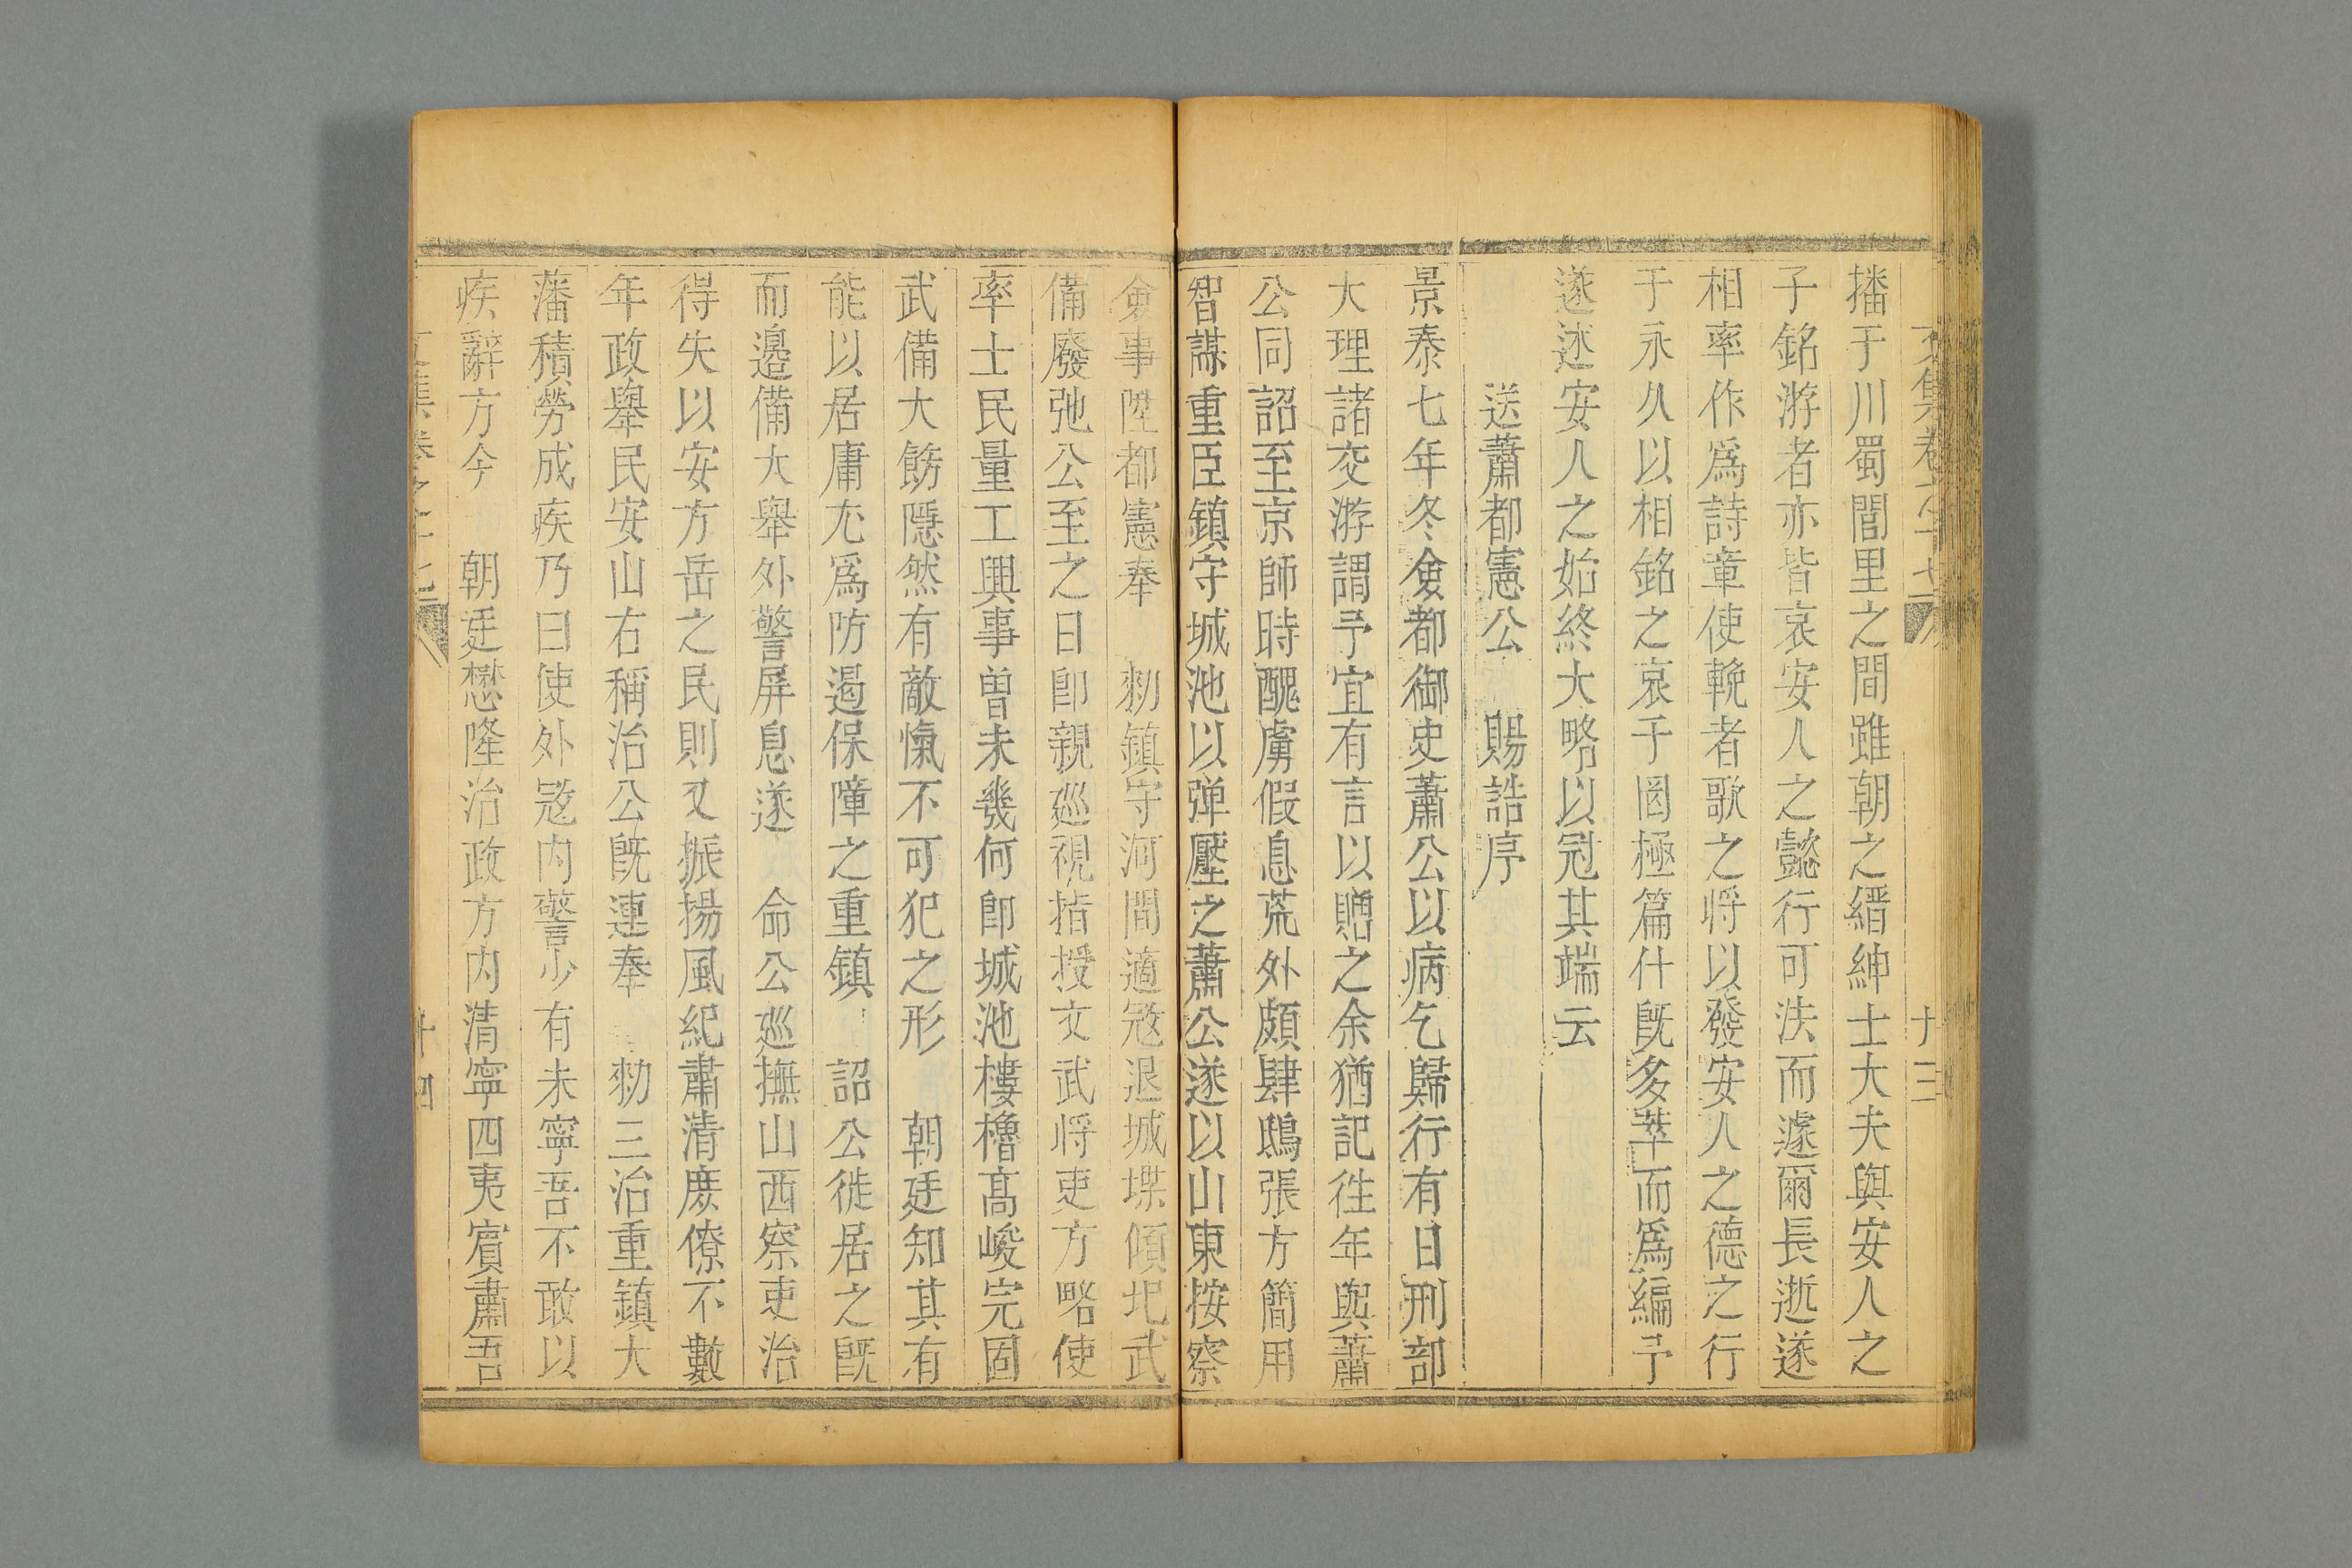 文集卷之十七
十三
播于川蜀閭里之間雖朝之縉紳士大夫與安人之
子銘游者亦皆哀安人之懿行可法而遽爾長逝遂
相率作爲詩章使輓者歌之将以發安人之德之行
于永久以相銘之哀于罔極篇什旣多萃而爲編予
遂述安人之始終大略以冠其端云
送蕭都憲公 賜誥序
景泰七年冬僉都御史蕭公以病乞歸行有日刑部
大理諸交游謂予宜有言以贈之余猶記徃年與蕭
公同詔至京師時醜虜假息荒外頗肆鴟張方簡用
智謀重臣鎮守城池以弹壓之蕭公遂以山東按察
僉事陞都憲奉 勑鎮守河間適宼退城堞傾圮武
備廢弛公至之日卽親廵視指授文武将吏方略使
率士民量工興事曾未幾何卽城池樓櫓髙峻完固
武備大飭隱然有敵愾不可犯之形 朝廷知其有
能以居庸尤爲防遏保障之重鎮 詔公徙居之旣
而邊備大舉外警屏息遂 命公廵撫山西察吏治
得失以安方岳之民則又振揚風紀肅清庶僚不數
年政舉民安山右稱治公旣連奉 勑三治重鎮大
藩積勞成疾乃曰使外宼内警少有未寧吾不敢以
疾辭方今 朝廷懋隆治政方内清寧四夷賓肅吾
文集卷之十七
十四